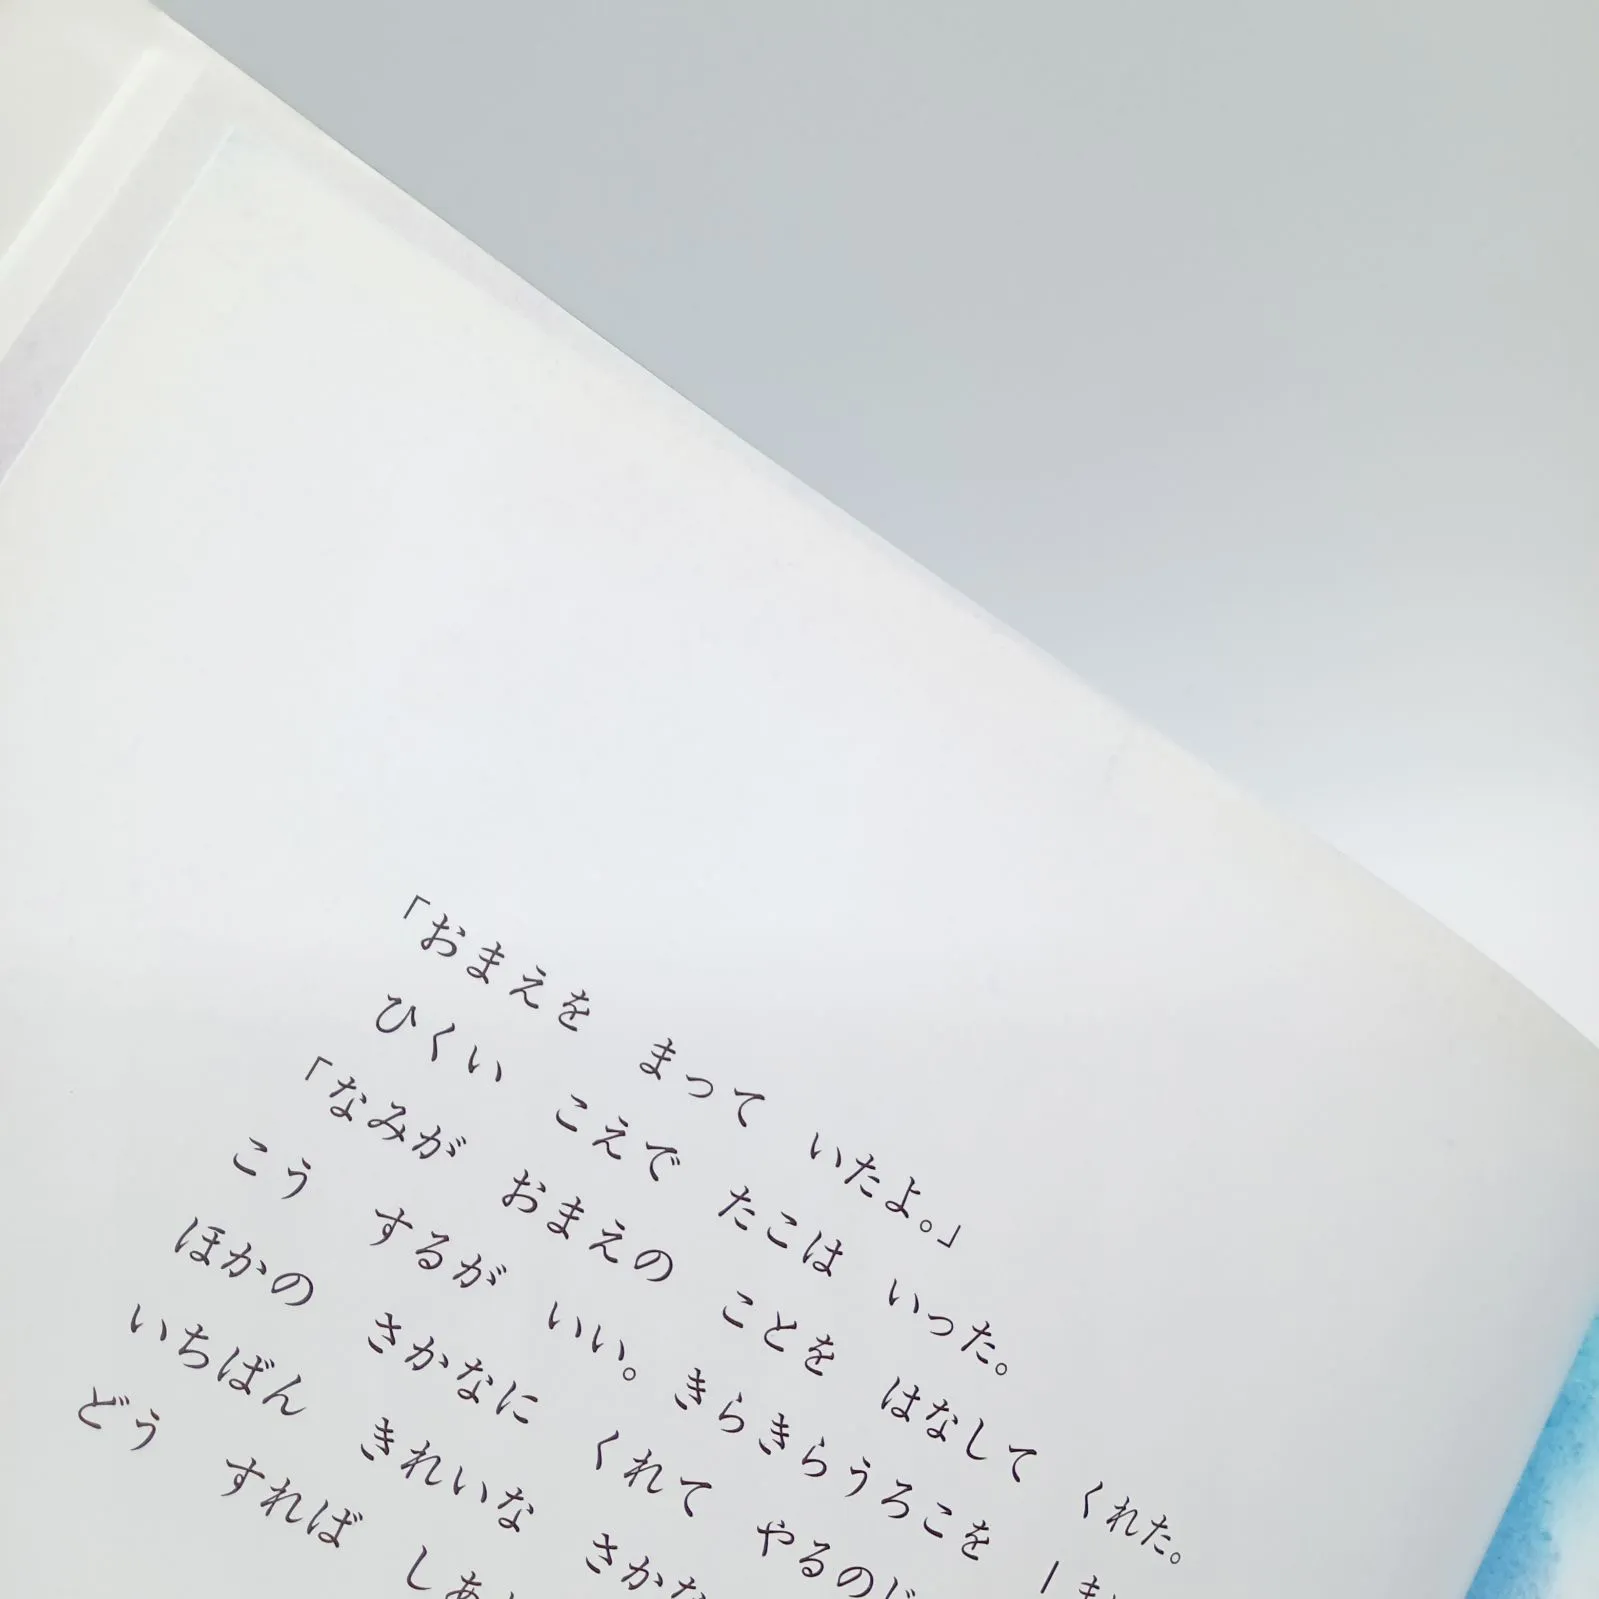 「おまえを まって いたよ。」
ひくい こえで たこは いった。
「なみが おまえの ことを はなして くれた。
こう するが いい。きらきらうろこを 1ま
ほかの さかなに くれて やるの
いちばん きれいな さかな
どう すれば しあ